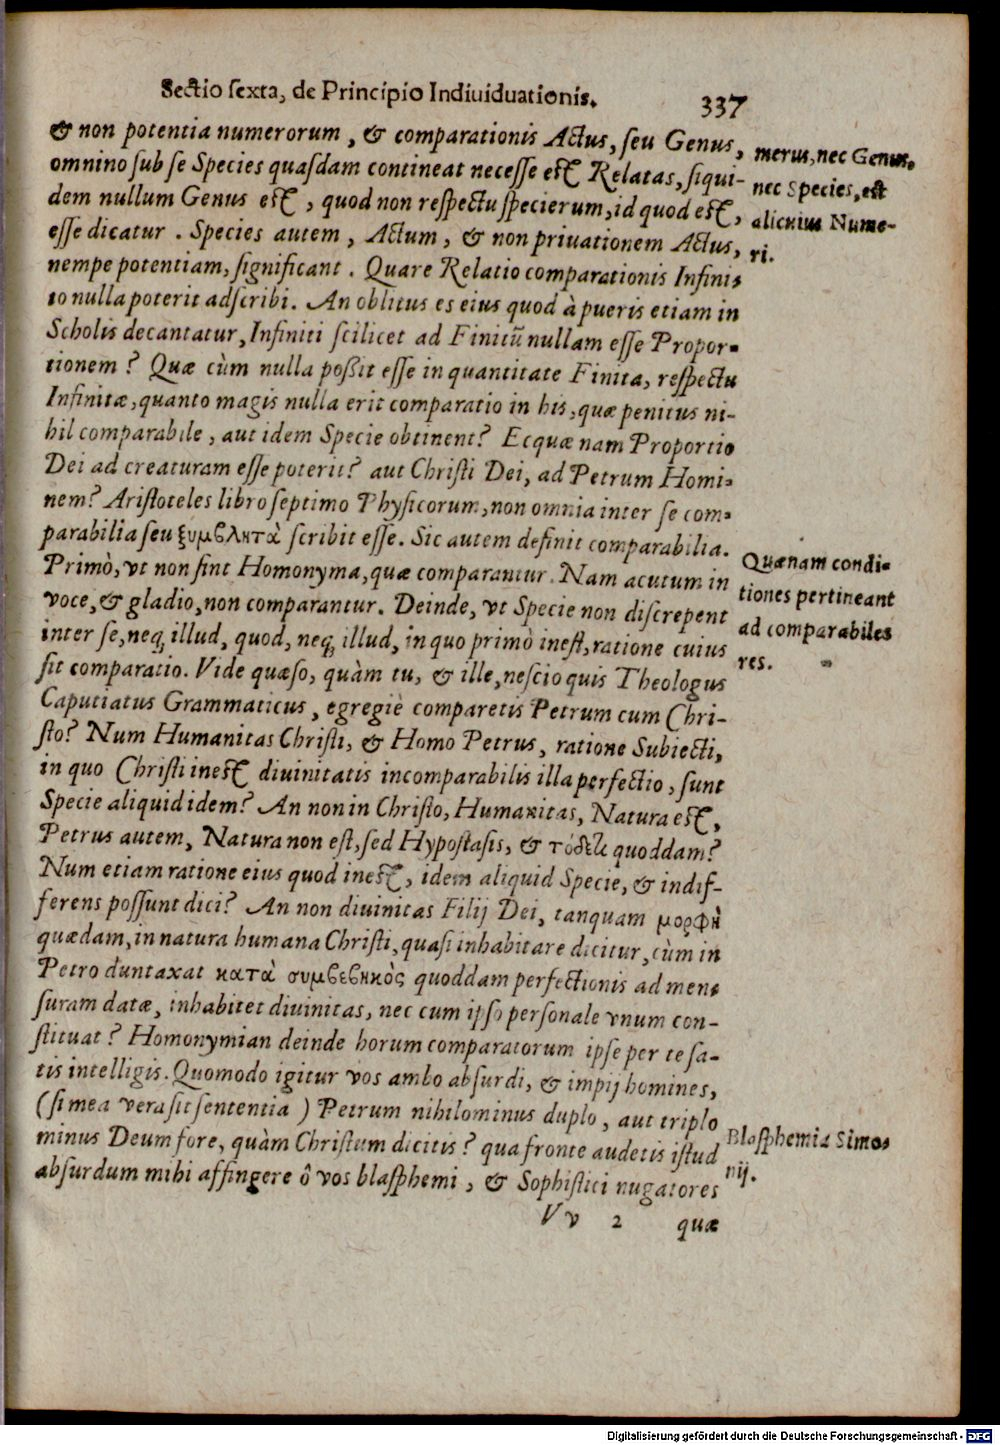 Sectio ſexta, de Principio Indiuiduationis.
337
& non potentia numerorum, & comparationis Actus, ſeu Genus,
omnino ſub ſe Species quaſdam contineat neceſſe eſt Relatas, ſiqui-
dem nullum Genus eſt, quod non reſpectu ſpecierum, id quod eſt,
eſſe dicatur. Species autem, Actum, & non priuationem Actus,
nempe potentiam, ſignificant. Quare Relatio comparationis Infini-
to nulla poterit adſcribi. An oblitus es eius quod à pueris etiam in
Scholis decantatur, Infiniti ſcilicet ad Finitū nullam eſſe Propor-
tionem? Quæ cùm nulla poßit eſſe in quantitate Finita, reſpectu
Infinitæ, quanto magis nulla erit comparatio in his, quæ penitus ni-
hil comparabile, aut idem Specie obtinent? Ecquæ nam Proportio
Dei ad creaturam eſſe poterit? aut Chriſti Dei, ad Petrum Homi-
nem? Ariſtoteles libro ſeptimo Phyſicorum, non omnia inter ſe com-
parabilia ſeu ξυμβλητὰ ſcribit eſſe. Sic autem definit comparabilia.
Primò, vt non ſint Homonyma, quæ comparantur. Nam acutum in
voce, & gladio, non comparantur. Deinde, vt Specie non diſcrepent
inter ſe, neq; illud, quod, neq; illud, in quo primò ineſt, ratione cuius
ſit comparatio. Vide quæſo, quàm tu, & ille, neſcio quis Theologus
Caputiatus Grammaticus, egregiè comparetis Petrum cum Chri-
ſto? Num Humanitas Chriſti, & Homo Petrus, ratione Subiecti,
in quo Chriſti ineſt diuinitatis incomparabilis illa perfectio, ſunt
Specie aliquid idem? An non in Chriſto, Humanitas, Natura eſt,
Petrus autem, Natura non eſt, ſed Hypoſtaſis, & τόδε τι quoddam?
Num etiam ratione eius quod ineſt, idem aliquid Specie, & indif-
ferens poſſunt dici? An non diuinitas Filij Dei, tanquam μορφὴ
quædam, in natura humana Chriſti, quaſi inhabitare dicitur, cùm in
Petro duntaxat κατὰ συμβεβηκὸς quoddam perfectionis ad men-
ſuram datæ, inhabitet diuinitas, nec cum ipſo perſonale vnum con-
ſtituat? Homonymian deinde horum comparatorum ipſe per te ſa-
tis intelligis. Quomodo igitur vos ambo abſurdi, & impij homines,
(ſi mea vera ſit ſententia) Petrum nihilominus duplo, aut triplo
minus Deum fore, quàm Chriſtum dicitis? qua fronte audetis iſtud
abſurdum mihi affingere ô vos blaſphemi, & Sophiſtici nugatores
V v 2 quæ
merus, nec Genus,
nec Species, eſt
alicuius Nume-
ri.
Quænam condi-
tiones pertineant
ad comparabiles
res.
Blaſphemia Simo-
nij.
Digitalisierung gefördert durch die Deutsche Forschungsgemeinschaft - DFG